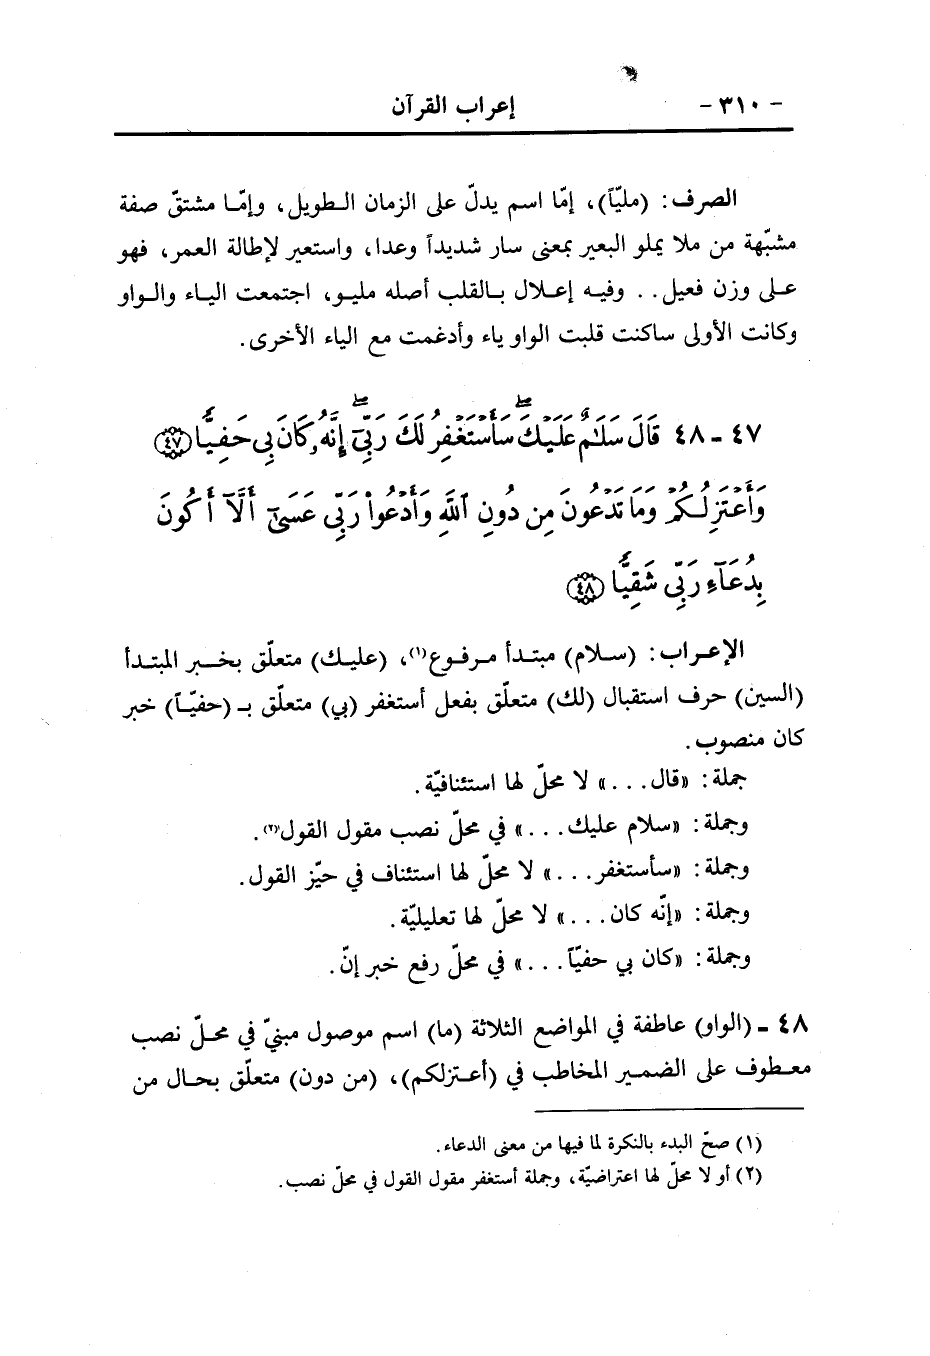 - ٣١٠ - إعراب القرآن
الصرف: (مليّاً)، إمّا اسم يدلّ على الزمان الطويل، وإمّا مشتقّ صفة
مشبّهة من ملا يملو البعير بمعنى سار شديداً وعدا، واستعير لإطالة العمر، فهو
على وزن فعيل.. وفيه إعلال بالقلب أصله مليو، اجتمعت الياء والواو
وكانت الأولى ساكنت قلبت الواو ياء وأدغمت مع الياء الأخرى.
٤٧ - ٤٨ قَالَ سَلَٰمٌ عَلَيْكَ ۖ سَأَسْتَغْفِرُ لَكَ رَبِّىٓ ۖ إِنَّهُۥ كَانَ بِى حَفِيًّا ﴿٤٧﴾
وَأَعْتَزِلُكُمْ وَمَا تَدْعُونَ مِن دُونِ ٱللَّهِ وَأَدْعُوا۟ رَبِّى عَسَىٰٓ أَلَّآ أَكُونَ
بِدُعَآءِ رَبِّى شَقِيًّا ﴿٤٨﴾
الإعراب: (سلام) مبتدأ مرفوع(١)، (عليك) متعلّق بخبر المبتدأ
(السين) حرف استقبال (لك) متعلّق بفعل أستغفر (بي) متعلّق بـ (حفيّاً) خبر
كان منصوب.
جملة: «قال...» لا محلّ لها استئنافيّة.
وجملة: «سلام عليك...» في محلّ نصب مقول القول(٢).
وجملة: «سأستغفر...» لا محلّ لها استئناف في حيّز القول.
وجملة: «إنّه كان...» لا محلّ لها تعليليّة.
وجملة: «كان بي حفيّاً...» في محلّ رفع خبر إنّ.
٤٨ - (الواو) عاطفة في المواضع الثلاثة (ما) اسم موصول مبنيّ في محلّ نصب
معطوف على الضمير المخاطب في (أعتزلكم)، (من دون) متعلّق بحال من
(١) صحّ البدء بالنكرة لما فيها من معنى الدعاء.
(٢) أو لا محلّ لها اعتراضيّة، وجملة أستغفر مقول القول في محلّ نصب.